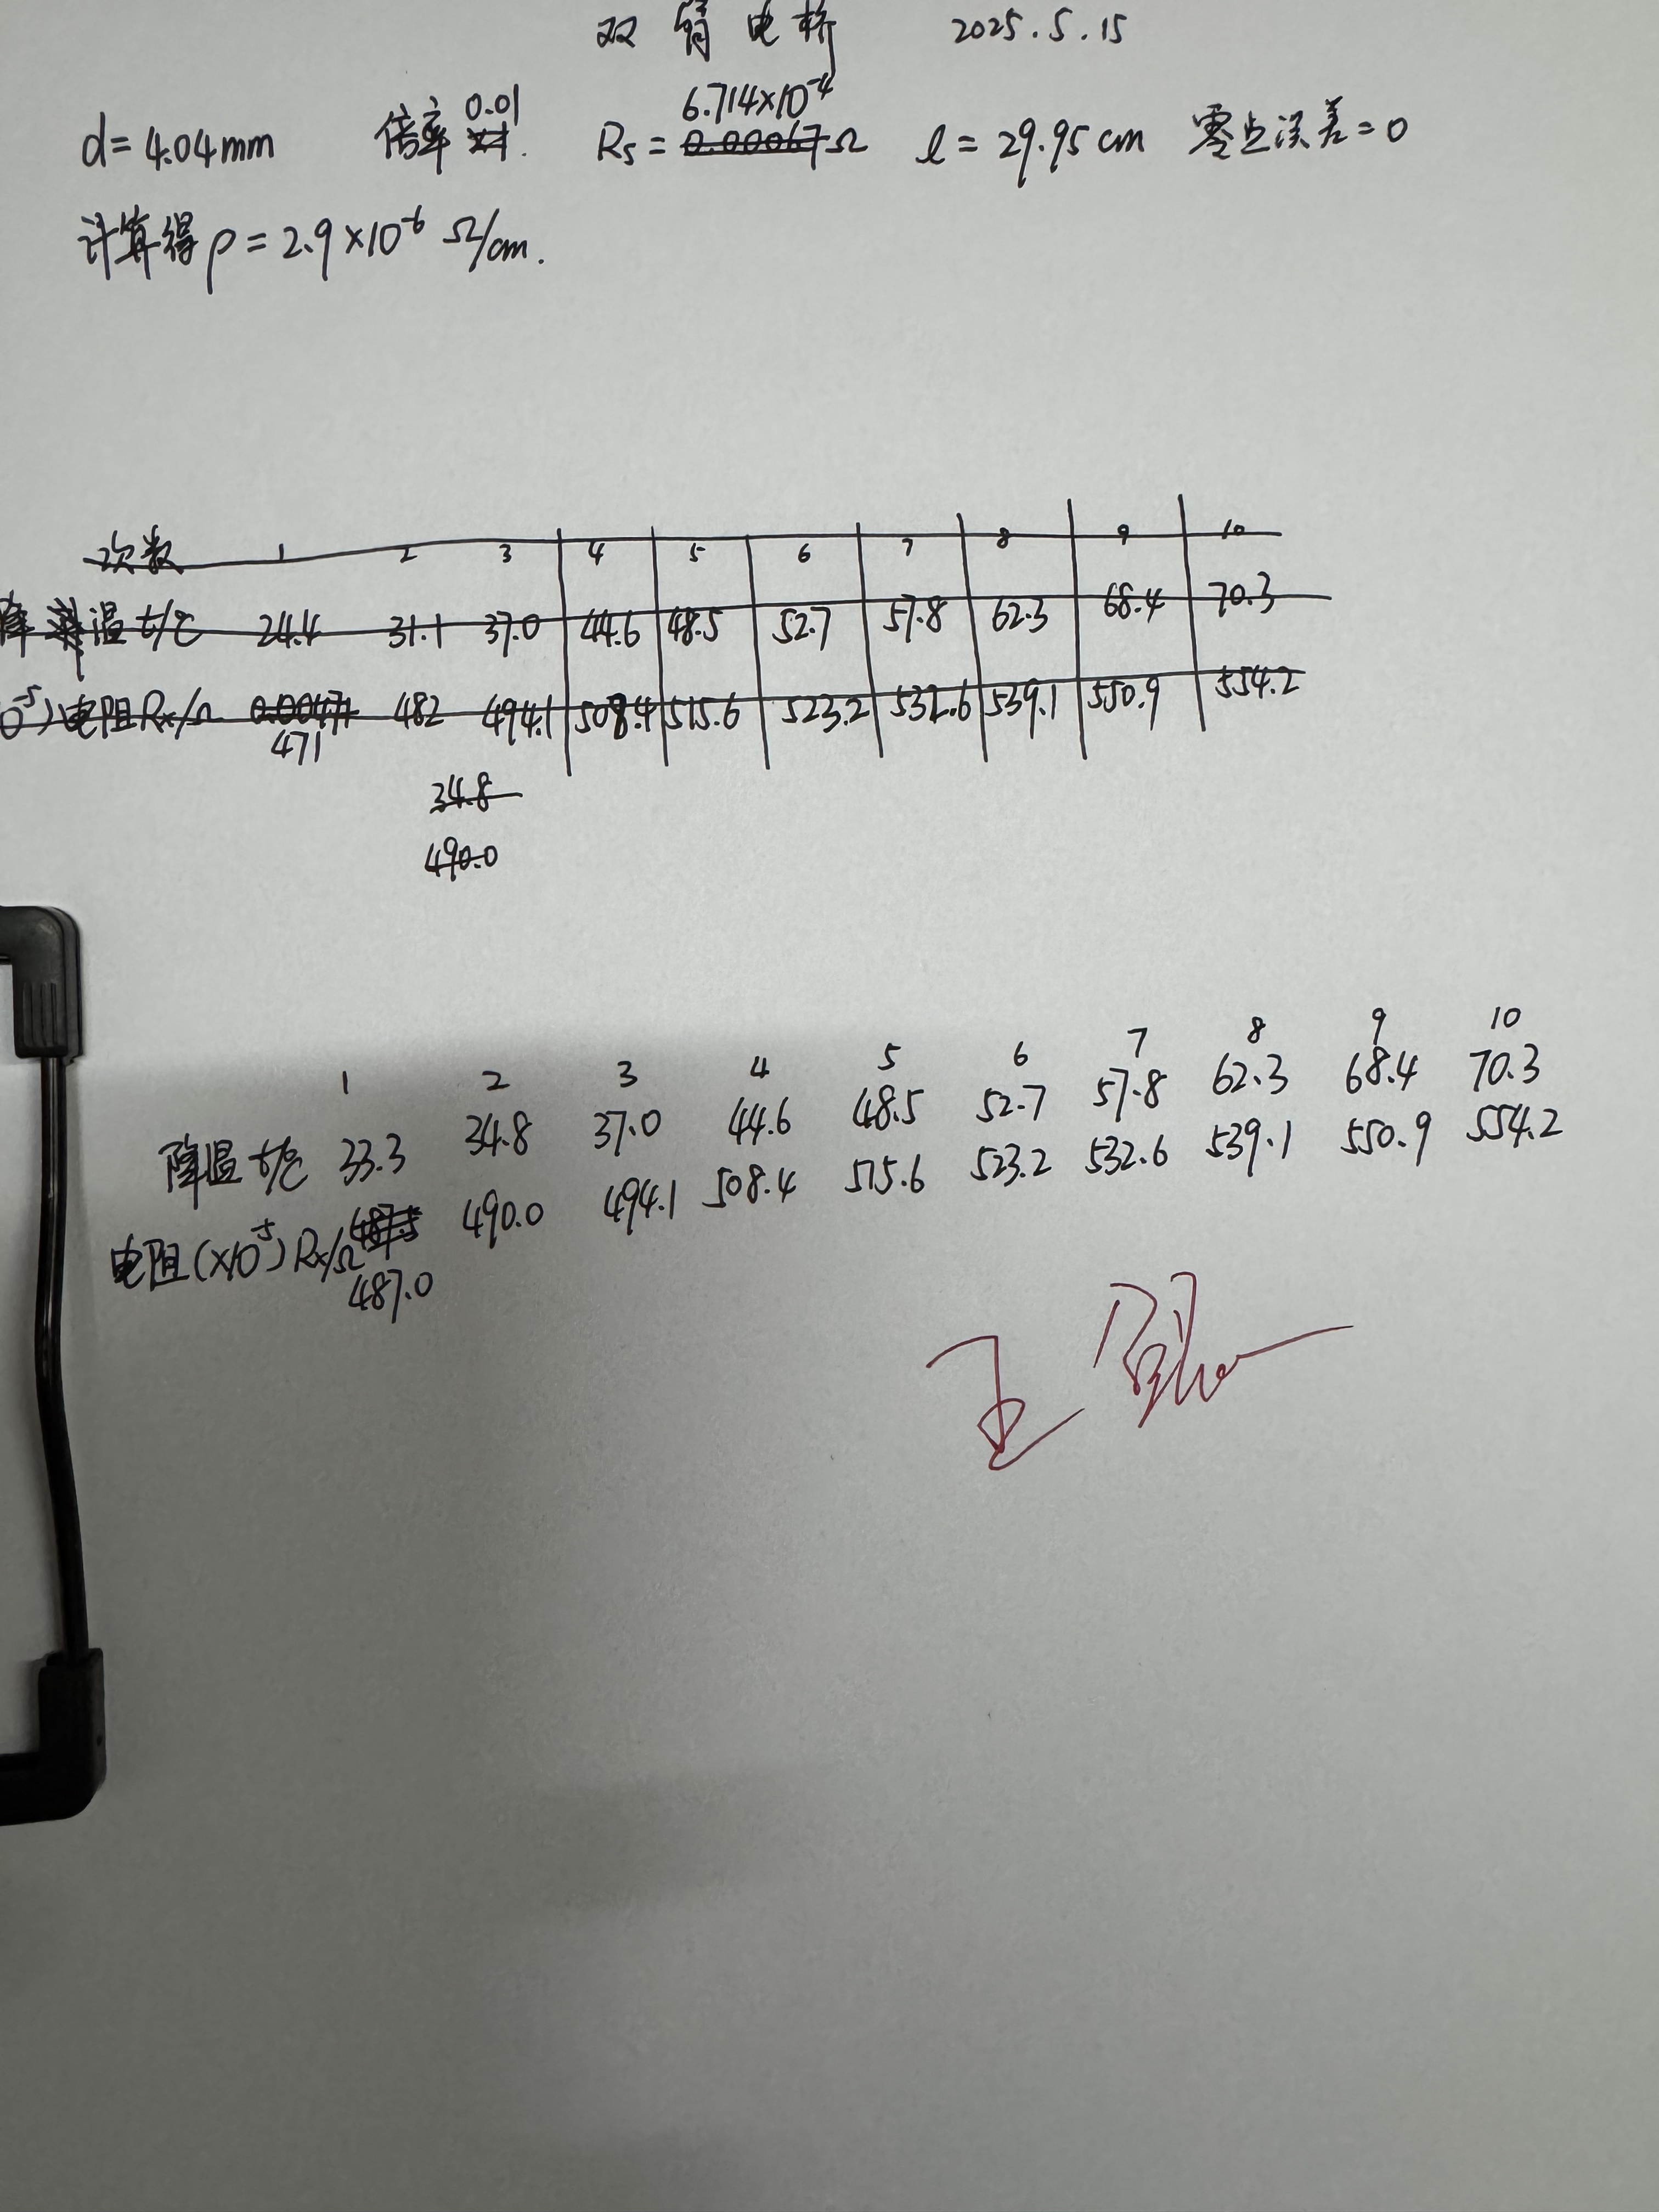 双臂电桥 2025.5.15
d=4.04mm 倍率 0.01 Rs=6.714×10⁻⁴Ω l=29.95cm 零点误差=0
计算得ρ=2.9×10⁻⁶ Ω/cm.
次数 1 2 3 4 5 6 7 8 9 10
降温t/℃ 24.4 31.1 37.0 44.6 48.5 52.7 57.8 62.3 68.4 70.3
0⁻⁵)电阻Rx/Ω 0.00471 482 494.1 508.4 515.6 523.2 532.6 539.1 550.9 554.2
471
34.8
490.0
1 2 3 4 5 6 7 8 9 10
降温t/℃ 33.3 34.8 37.0 44.6 48.5 52.7 57.8 62.3 68.4 70.3
电阻(×10⁻⁵)Rx/Ω 487.5 490.0 494.1 508.4 515.6 523.2 532.6 539.1 550.9 554.2
487.0
王